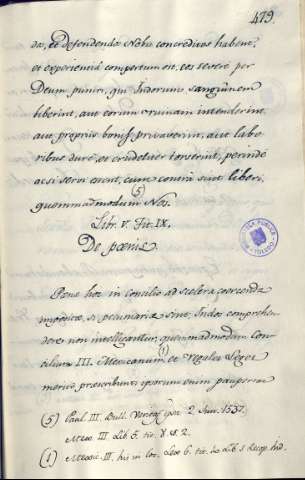 479.
da, et defendenda Nobis concreditas habent,
et experientia compertum est, eos severe per
Deum puniri, qui Indorum sanguinem
biberint, aut eorum ruinam intenderint
aut propriis bonis privaverint, aut labo
ribus dure, et crudeliter torserint, perinde
ac si servi essent, cum contra sint liberi,
quemmadmodum Nos. (5)
Libr. V. Tit. IX.
De poenis.
BIBLIOTECA PUBLICA
TOLEDO
Penae hoc in Concilio ad scelera coercenda
impositae, si pecuniariae sint, Indos comprehen
dere non intelligantur, quemadmodum Con
cilium III. Mexicanum (1) et Regales Leges
praescribunt; ipsorum enim pauperiem
(5) Paul. III. Bull. 2. Jun. 1537.
Mexic. III. Lib. 5. tit. 8. §. 2.
(1) Mexic. III. hic in loc. Lex 6. tit. 10. Lib. 1. Recop. Ind.